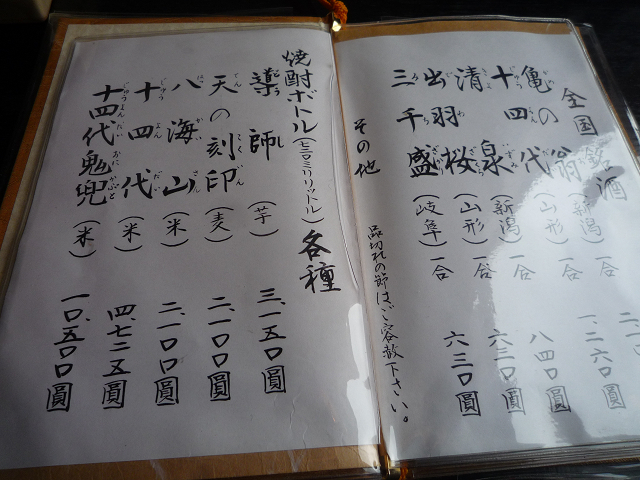 全国銘酒
亀の翁(新潟)一合 二、一〇
十四代(山形)一合 一、二六〇
清泉(新潟)一合 八四〇
出羽桜(山形)一合 六三〇圓
三千盛(岐阜)一合 六三〇圓
その他
品切れの節はご容赦下さい。
焼酎ボトル(七二〇ミリリットル)各種
薬師(芋) 三、一五〇圓
天の刻印(麦) 二、一〇〇圓
八海山(米) 二、一〇〇圓
十四代(米) 四、七二五圓
十四代鬼兜(米) 一〇、五〇〇圓